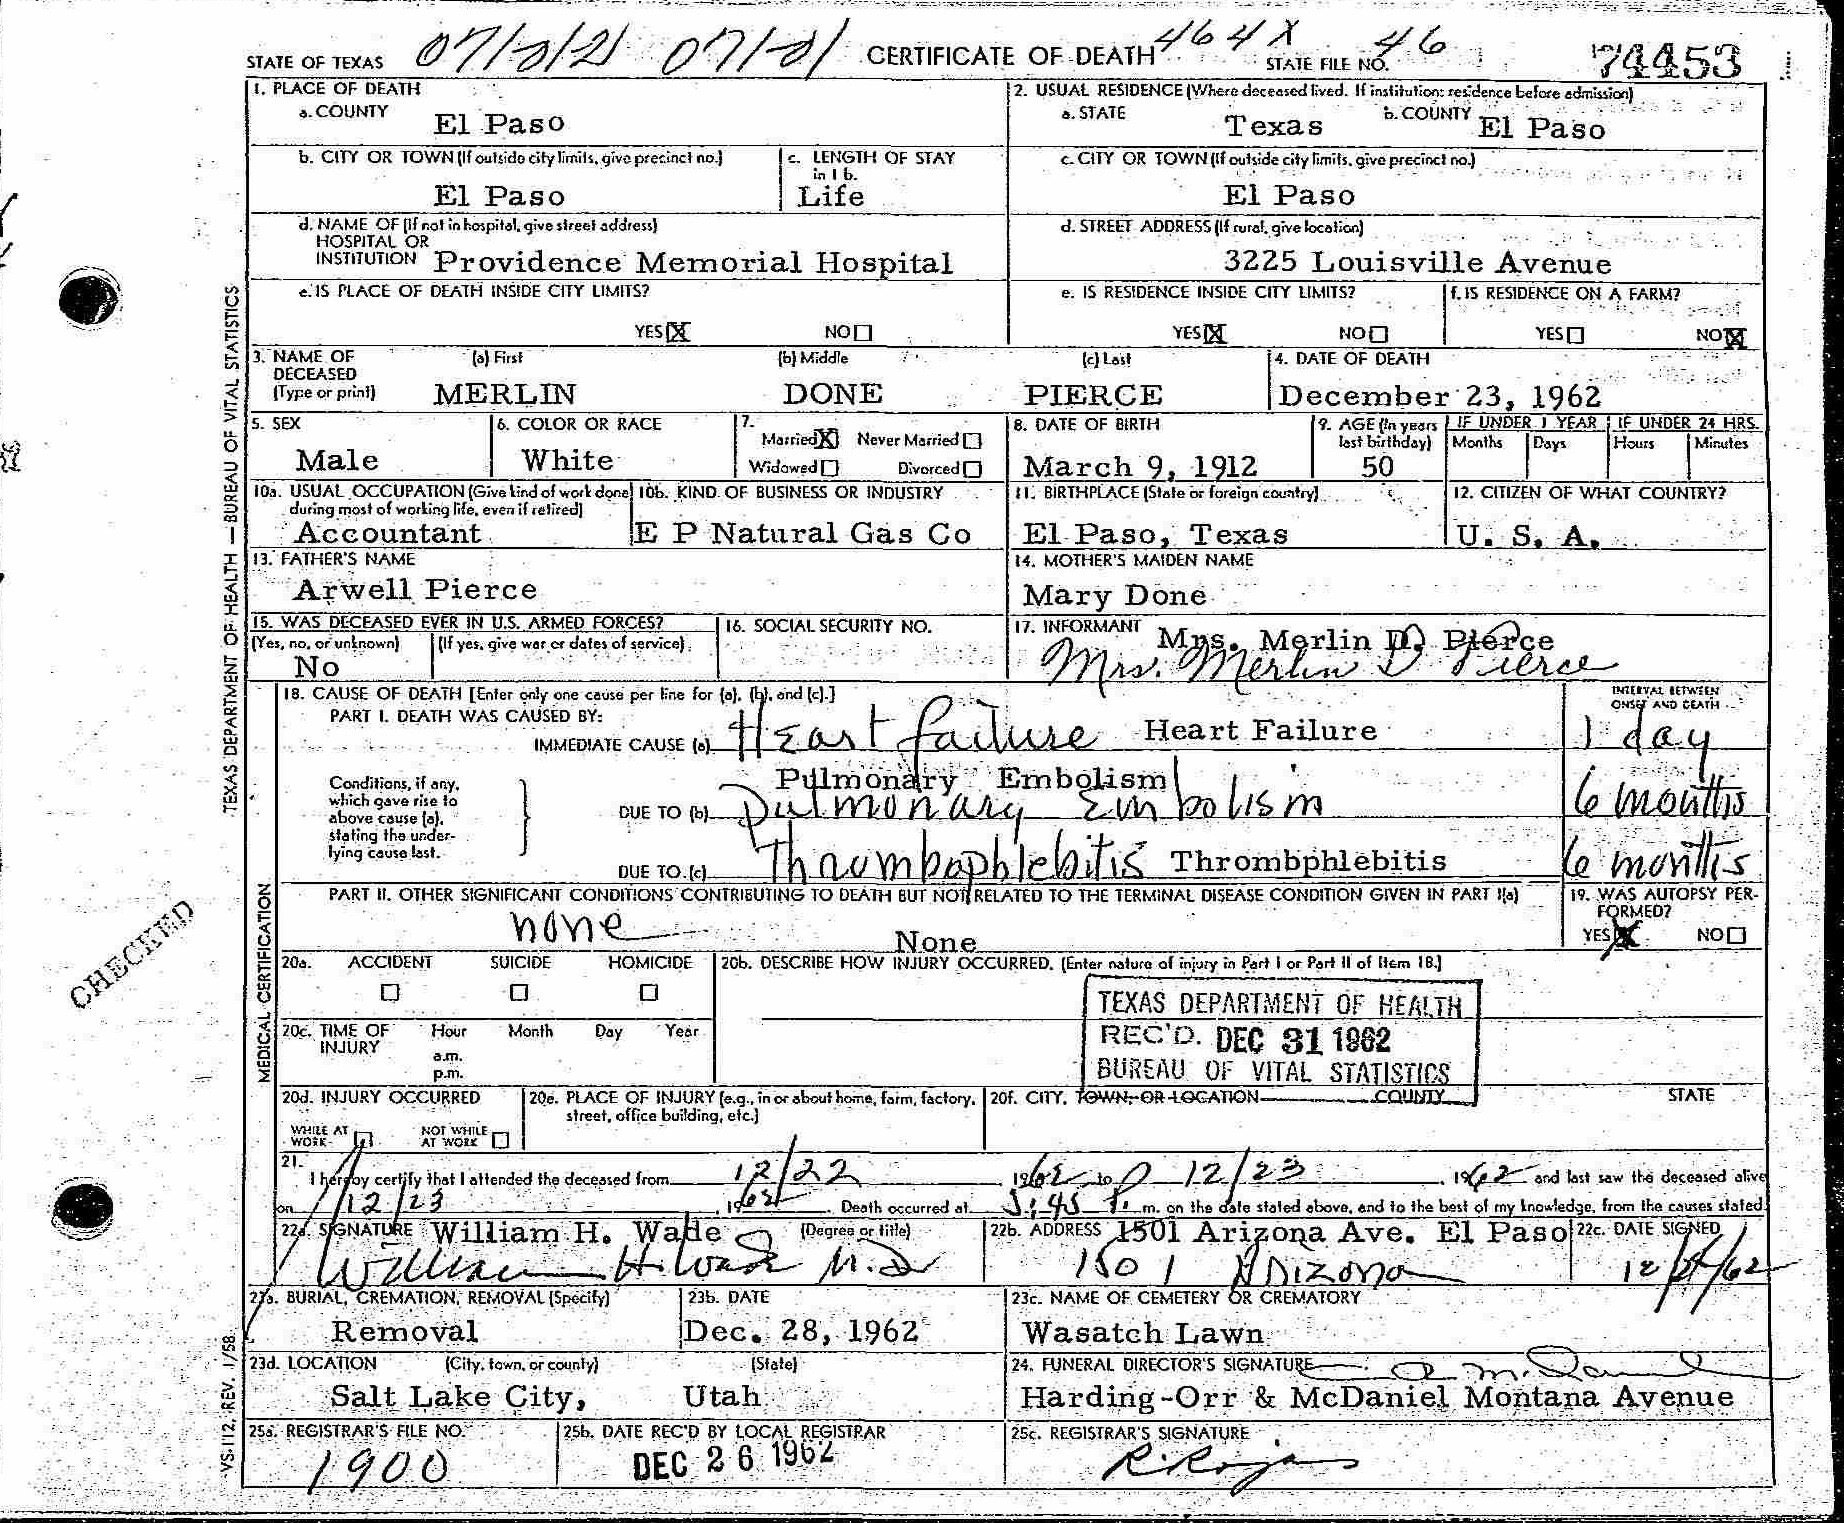 STATE OF TEXAS 071212 07121 CERTIFICATE OF DEATH 464X STATE FILE NO. 46 74453
1. PLACE OF DEATH
a. COUNTY El Paso
2. USUAL RESIDENCE (Where deceased lived. If institution: residence before admission)
a. STATE Texas b. COUNTY El Paso
b. CITY OR TOWN (If outside city limits, give precinct no.) El Paso
c. LENGTH OF STAY in 1 b. Life
c. CITY OR TOWN (If outside city limits, give precinct no.) El Paso
d. NAME OF (If not in hospital, give street address)
HOSPITAL OR
INSTITUTION Providence Memorial Hospital
d. STREET ADDRESS (If rural, give location)
3225 Louisville Avenue
e. IS PLACE OF DEATH INSIDE CITY LIMITS?
YES X NO
e. IS RESIDENCE INSIDE CITY LIMITS?
YES X NO
f. IS RESIDENCE ON A FARM?
YES NO X
3. NAME OF DECEASED (Type or print)
(a) First MERLIN (b) Middle DONE (c) Last PIERCE
4. DATE OF DEATH December 23, 1962
5. SEX Male
6. COLOR OR RACE White
7. Married X Never Married
Widowed Divorced
8. DATE OF BIRTH March 9, 1912
9. AGE (In years last birthday) 50
IF UNDER 1 YEAR Months Days
IF UNDER 24 HRS. Hours Minutes
10a. USUAL OCCUPATION (Give kind of work done during most of working life, even if retired) Accountant
10b. KIND OF BUSINESS OR INDUSTRY E P Natural Gas Co
11. BIRTHPLACE (State or foreign country) El Paso, Texas
12. CITIZEN OF WHAT COUNTRY? U. S. A.
13. FATHER'S NAME Arwell Pierce
14. MOTHER'S MAIDEN NAME Mary Done
15. WAS DECEASED EVER IN U.S. ARMED FORCES?
(Yes, no, or unknown) No (If yes, give war or dates of service)
16. SOCIAL SECURITY NO.
17. INFORMANT Mrs. Merlin D. Pierce
Mrs. Merlin D Pierce
18. CAUSE OF DEATH [Enter only one cause per line for (a), (b), and (c).]
INTERVAL BETWEEN ONSET AND DEATH
PART I. DEATH WAS CAUSED BY:
IMMEDIATE CAUSE (a) Heart failure Heart Failure 1 day
Conditions, if any, which gave rise to above cause (a), stating the underlying cause last.
Pulmonary Embolism
DUE TO (b) Pulmonary Embolism 6 months
DUE TO (c) Thrombophlebitis Thrombphlebitis 6 months
PART II. OTHER SIGNIFICANT CONDITIONS CONTRIBUTING TO DEATH BUT NOT RELATED TO THE TERMINAL DISEASE CONDITION GIVEN IN PART I(a)
none None
19. WAS AUTOPSY PERFORMED?
YES X NO
20a. ACCIDENT SUICIDE HOMICIDE
20b. DESCRIBE HOW INJURY OCCURRED. (Enter nature of injury in Part I or Part II of Item 18.)
TEXAS DEPARTMENT OF HEALTH
REC'D. DEC 31 1962
BUREAU OF VITAL STATISTICS
20c. TIME OF INJURY Hour Month Day Year
a.m.
p.m.
20d. INJURY OCCURRED
WHILE AT WORK NOT WHILE AT WORK
20e. PLACE OF INJURY (e.g., in or about home, farm, factory, street, office building, etc.)
20f. CITY, TOWN, OR LOCATION COUNTY STATE
21. I hereby certify that I attended the deceased from 12/22 1962 to 12/23 1962 and last saw the deceased alive
on 12/23 1962. Death occurred at 5:45 P. m. on the date stated above, and to the best of my knowledge, from the causes stated.
22a. SIGNATURE William H. Wade (Degree or title)
William H. Wade M.D.
22b. ADDRESS 1501 Arizona Ave. El Paso
1501 Arizona
22c. DATE SIGNED
23a. BURIAL, CREMATION, REMOVAL (Specify) Removal
23b. DATE Dec. 28, 1962
23c. NAME OF CEMETERY OR CREMATORY Wasatch Lawn
23d. LOCATION (City, town, or county) (State)
Salt Lake City, Utah
24. FUNERAL DIRECTOR'S SIGNATURE
Harding-Orr & McDaniel Montana Avenue
25a. REGISTRAR'S FILE NO. 1900
25b. DATE REC'D BY LOCAL REGISTRAR DEC 26 1962
25c. REGISTRAR'S SIGNATURE
TEXAS DEPARTMENT OF HEALTH — BUREAU OF VITAL STATISTICS
MEDICAL CERTIFICATION
VS-112, REV. 1/58
CHECKED